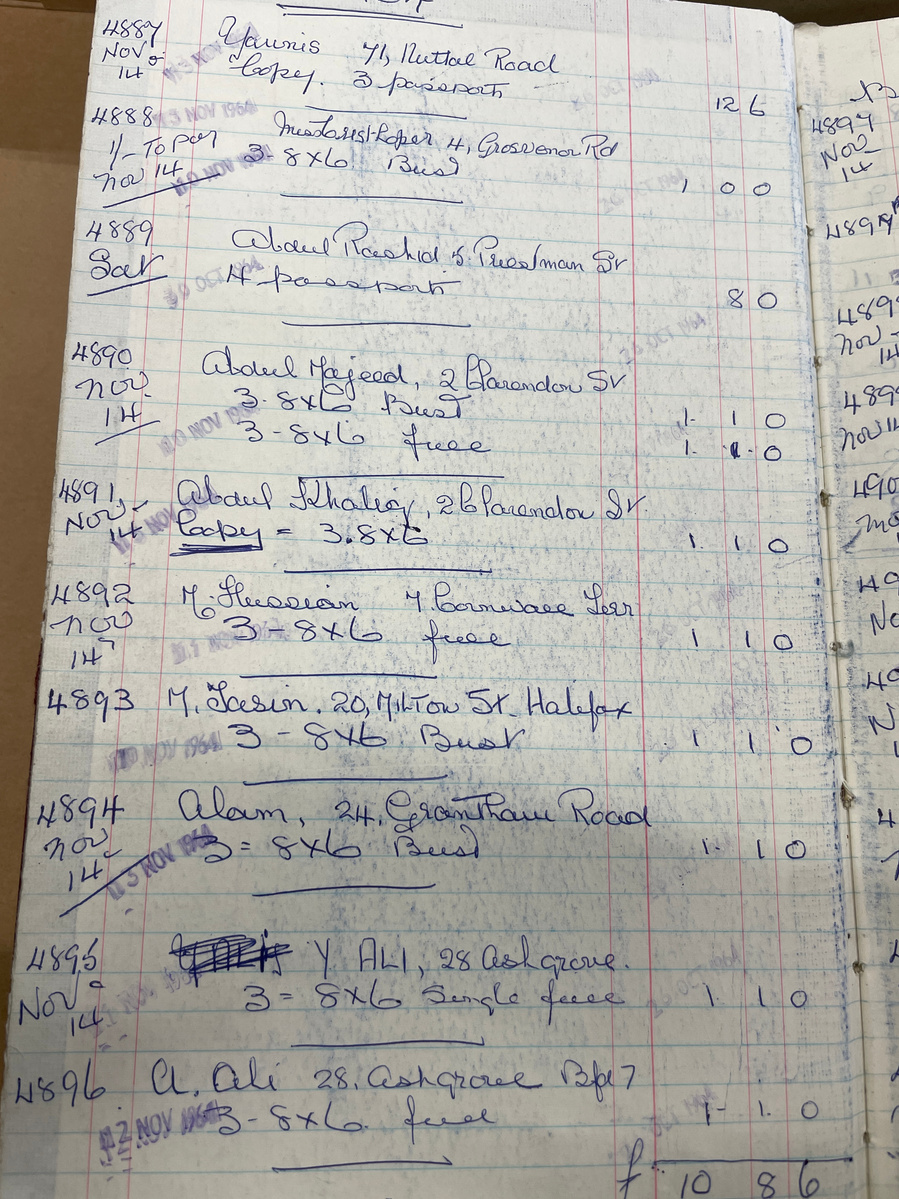 4887 Younis 71, Nuttal Road
Nov 14 Copy. 3 passports 12 6
13 NOV 1964
4888 4, Grosvenor Rd
1/- To pay 3 8x6 Bust
Nov 14 1 0 0
4889 Abdul Rashid 5. Priestman St
Sat 4 passports 8 0
30 OCT 1964
4890 Abdul Majeed, 2 Clarendon St
Nov. 3. 8x6 Bust 1. 1 0
14 3 - 8x6 full 1. 1. 0
4891 Abdul Khaliq, 2 Clarendon St.
Nov 14 Copy = 3. 8x6 1. 1 0
4892 M. Hussian 7 Cornwall Terr
Nov 3 - 8x6 full 1 1 0
14
4893 M. Yasin. 20, Milton St. Halifax
3 - 8x6 Bust 1 1 0
10 NOV 1964
4894 Alam, 24, Grantham Road
Nov 3 = 8x6 Bust 1. 1 0
14
13 NOV 1964
4895 Y ALI, 28 Ashgrove.
Nov 3 = 8x6 Single full 1. 1 0
14
4896 A. Ali 28. Ashgrove Bfd 7
3 - 8x6. full 1- 1. 0
12 NOV 1964
£ 10 8 6
4897
Nov
14